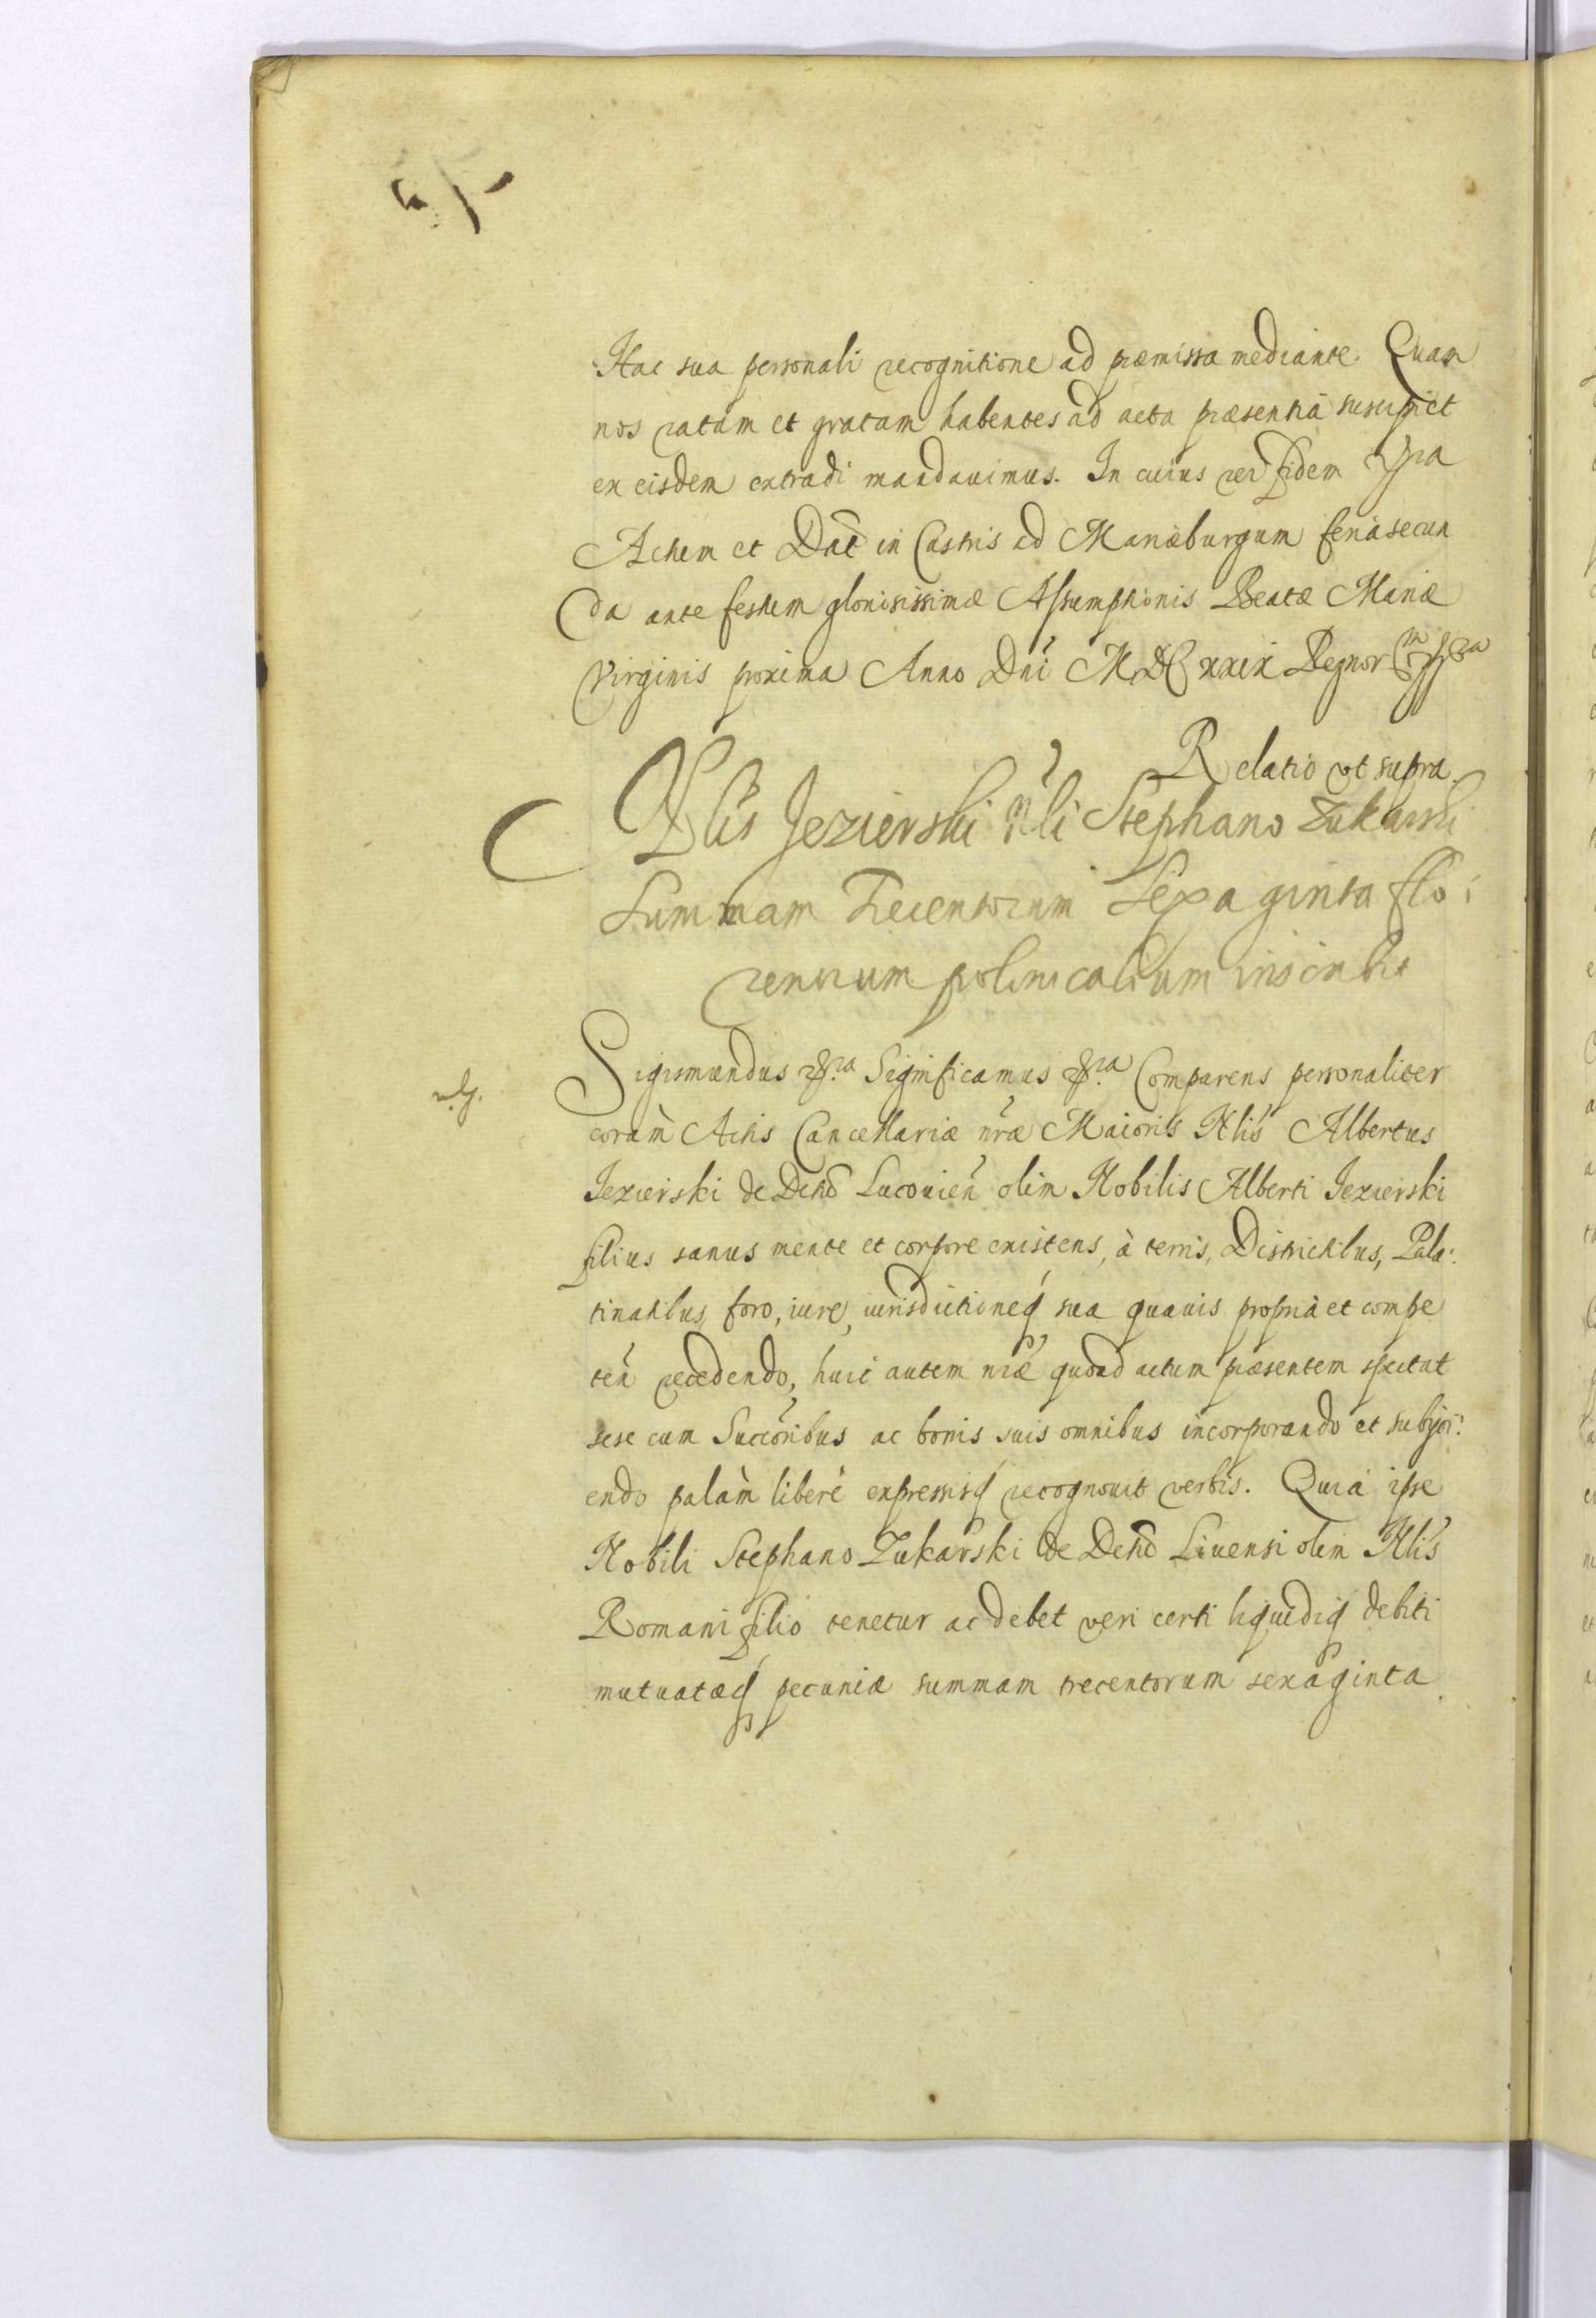 Hac sua personali recognitione ad præmissa mediante. Quam
nos ratam et gratam habentes ad acta præsentia suscipi et
ex eisdem extradi mandauimus. In cuius rei fidem
Actum et Dat̃ in Castris ad Mariæburgum feria secun
da ante festum gloriosissimæ Assumptionis Beatæ Mariæ
Virginis proxima Anno Dnĩ MDCXXIX Regnor
Relatio vt supra.
Nblis Jezierski Nbli Stephano Zukarski
Summam Trecentorum Sexaginta flo:
renorum polonicalium inscribit
Sigismundus Significamus Comparens personaliter
coràm Actis Cancellariæ nr̃æ Maioris Nblis Albertus
Jezierski de Dertõ Lucouieñ olim Nobilis Alberti Jezierski
filius sanus mente et corpore existens, à terris, Districtibus, Pala:
tinatibus, foro, iure, iurisdictioneq́ sua quauis propria et compe
teñ recedendo, huic autem nr̃æ quoad actum præsentem spectat
sese cum Succõribus ac bonis suis omnibus incorporando et subijci:
endo palàm liberè expressisq́ recognouit verbis. Quia ipse
Nobili Stephano Zukarski de Dertõ Liuensi olim Nblis
Romani filio tenetur ac debet veri certi liquidiq́ debiti
mutuatæq́ pecuniæ summam trecentorum sexaginta